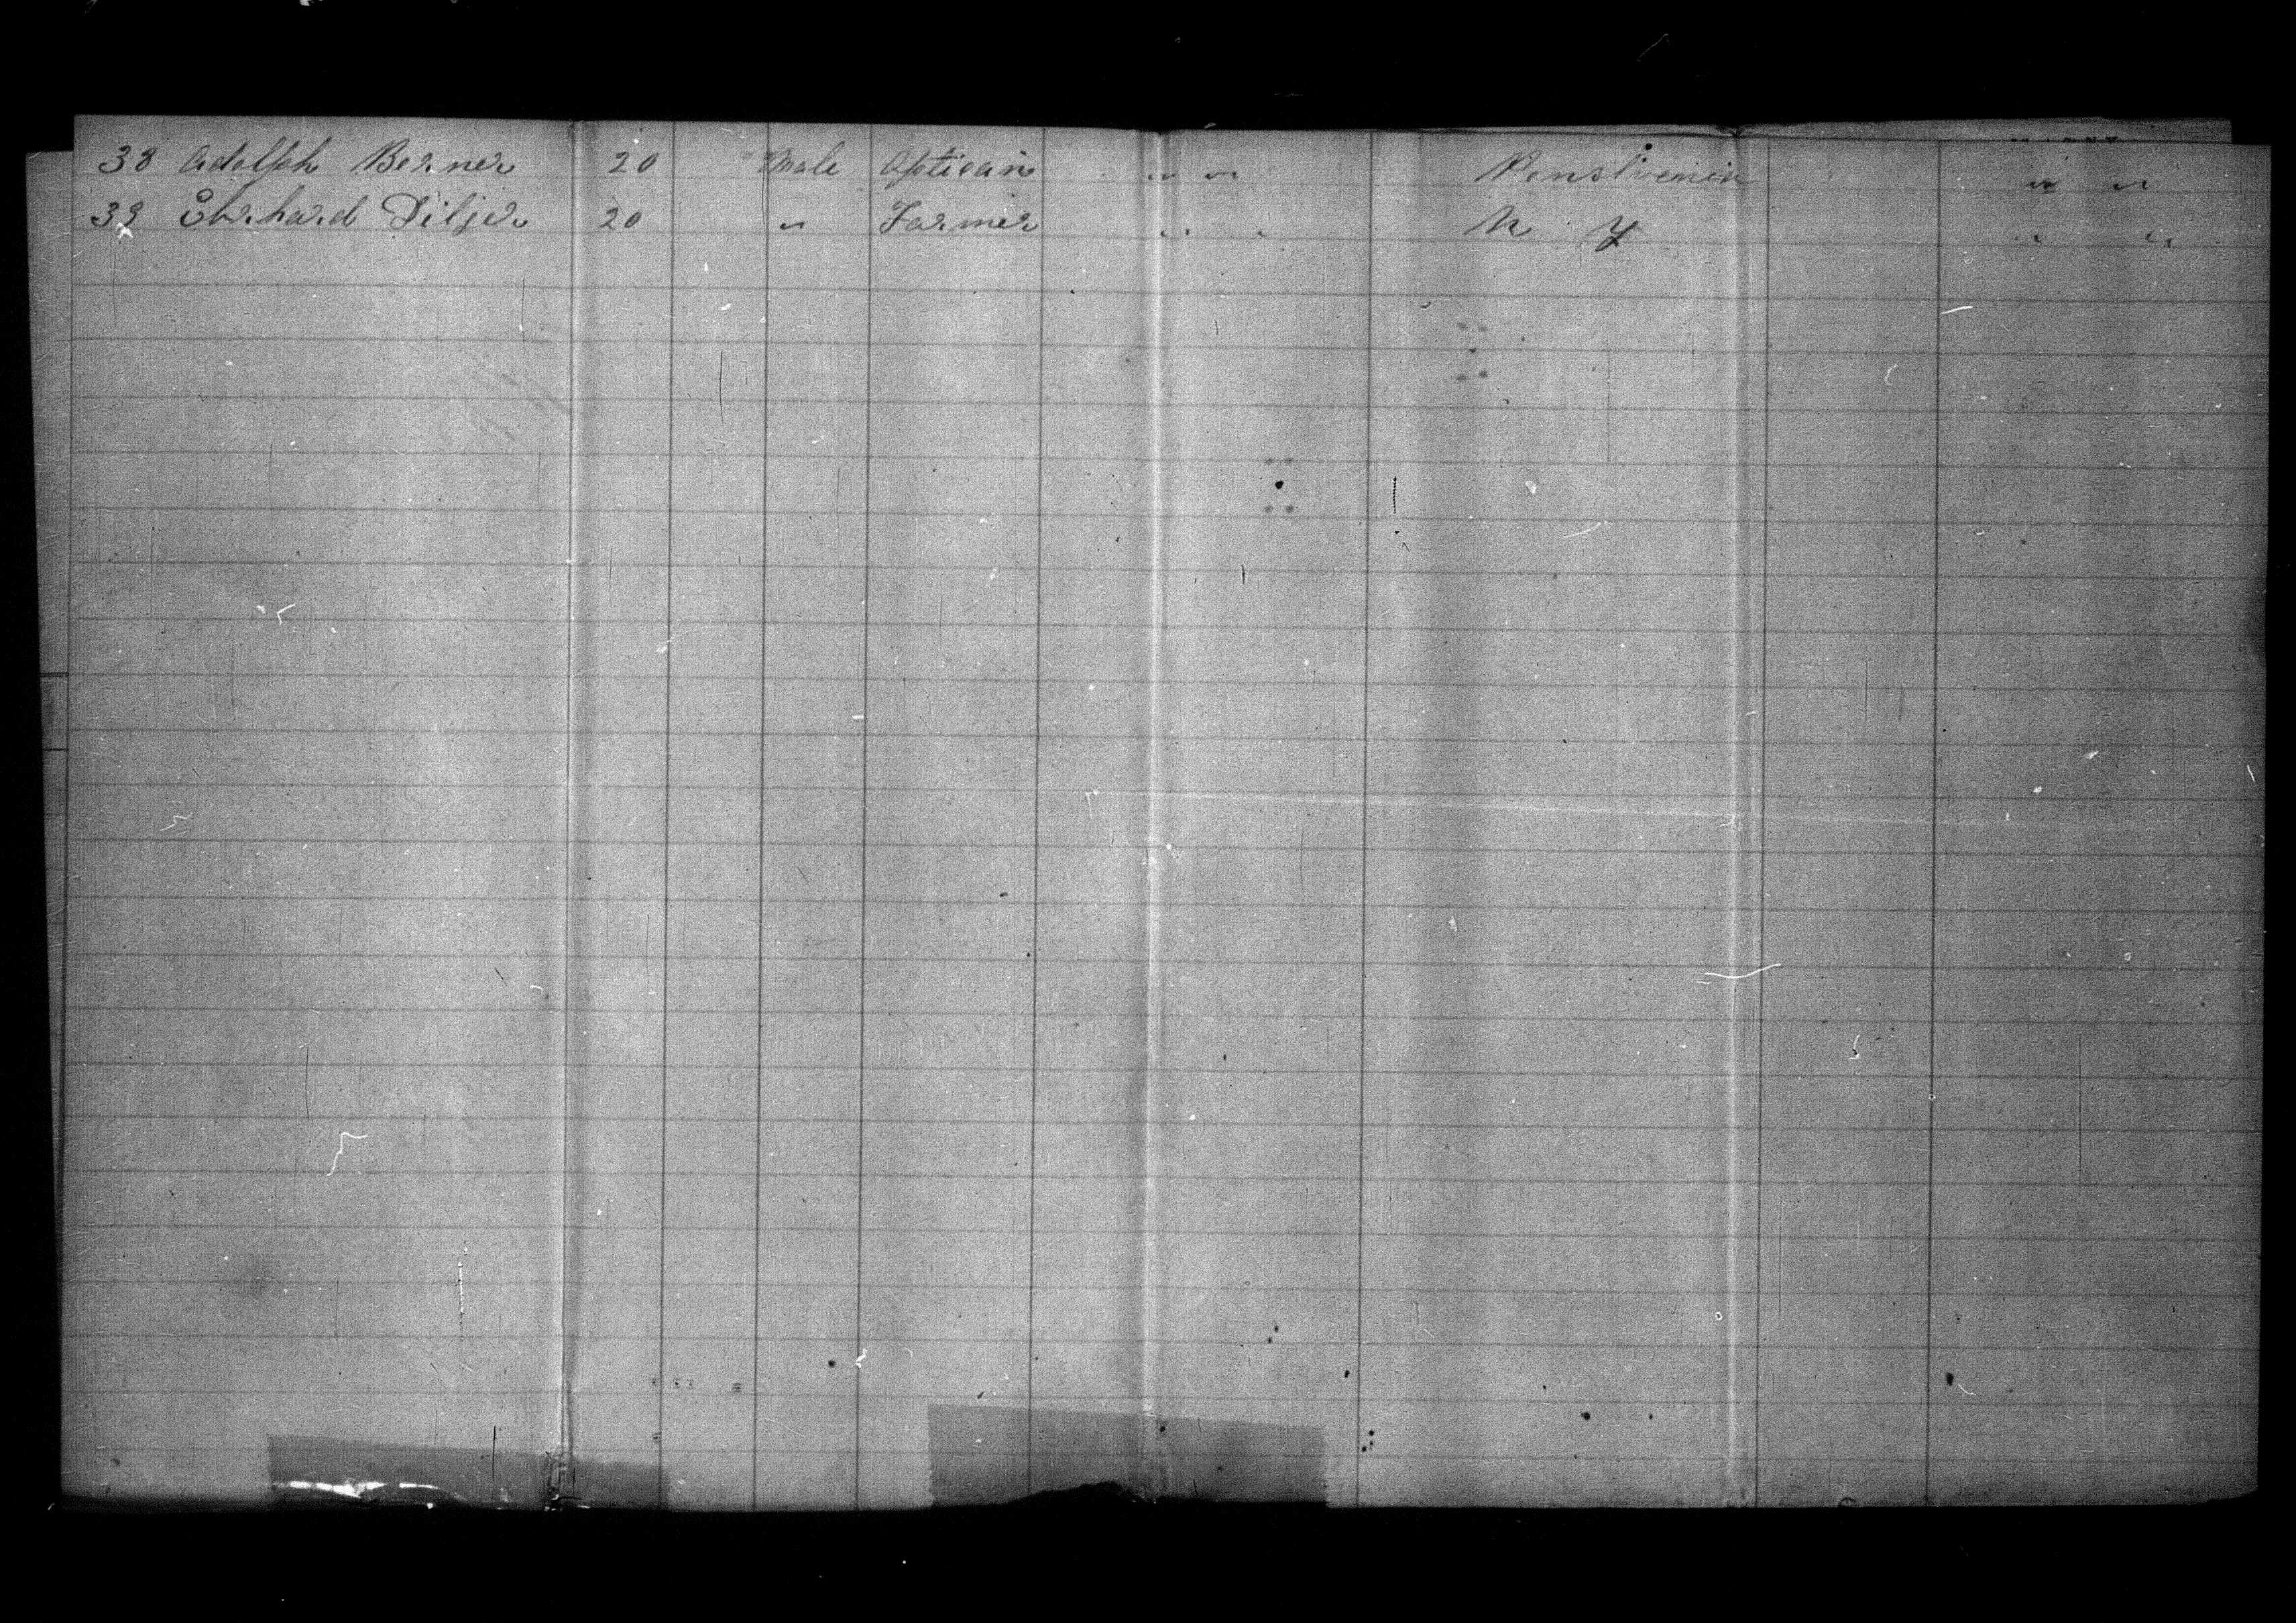 38 Adolph Berner 20 Male Optican " " Penslvenien " "
39 Ehrhard Diljer 20 " Farmer " " N Y " "